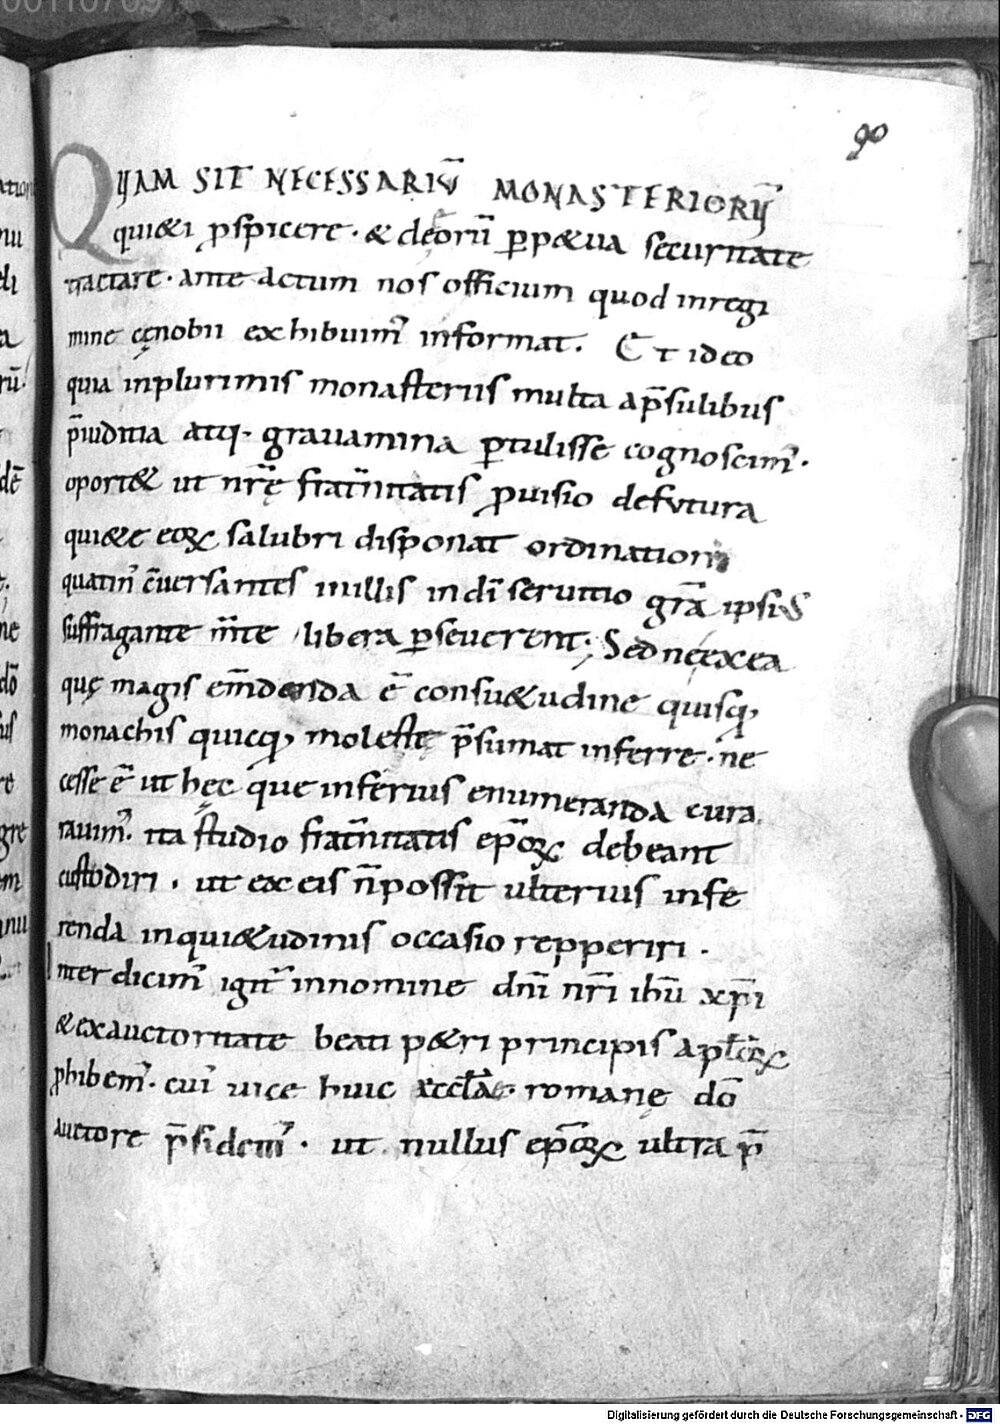 90
QUAM SIT NECESSARIŪ MONASTERIORṼ
qui&i ꝓspicere · & deorū ꝑp&ua securitate
tractare · ante actum nos officium quod inregi
mine cęnobii exhibuim᾽ informat. Et ideo
quia inplurimis monasteriis multa ap̄sulibus
p̄iuditia atq· grauamina ꝑtulisse cognoscim᾽.
oport& ut nr̄ę frat̄nitatis ꝓuisio defutura
qui&e eoꝝ salubri disponat ordination
quatin᾽ c̄uersantes inillis indī seruitio gr̄a ipsiS
suffragante m̄te libera ꝑseuerent; Sed neęexea
quę magis em̄denda ē consu&udine quisq;
monachis quicq; molestię p̄sumat inferre · ne
cesse ē ut hęc que inferius enumeranda cura
rauim᾽. ita studio frat̄nitatis ep̄oꝝ debeant
custodiri . ut ex eis n̄possit ulterius infe
renda inqui&udinis occasio repperiri .
Interdicim᾽ igit᾽ innomine dn̄i nr̄i ihū xp̄i
& exauctoritate beati p&ri principis apl̄oꝝ
ꝓhibem᾽. cui᾽ uice huic ęccl̄ae. romanę dō
auctore p̄sidem᾽ . ut nullus ep̄oꝝ ultra p̄
Digitalisierung gefördert durch die Deutsche Forschungsgemeinschaft - DFG